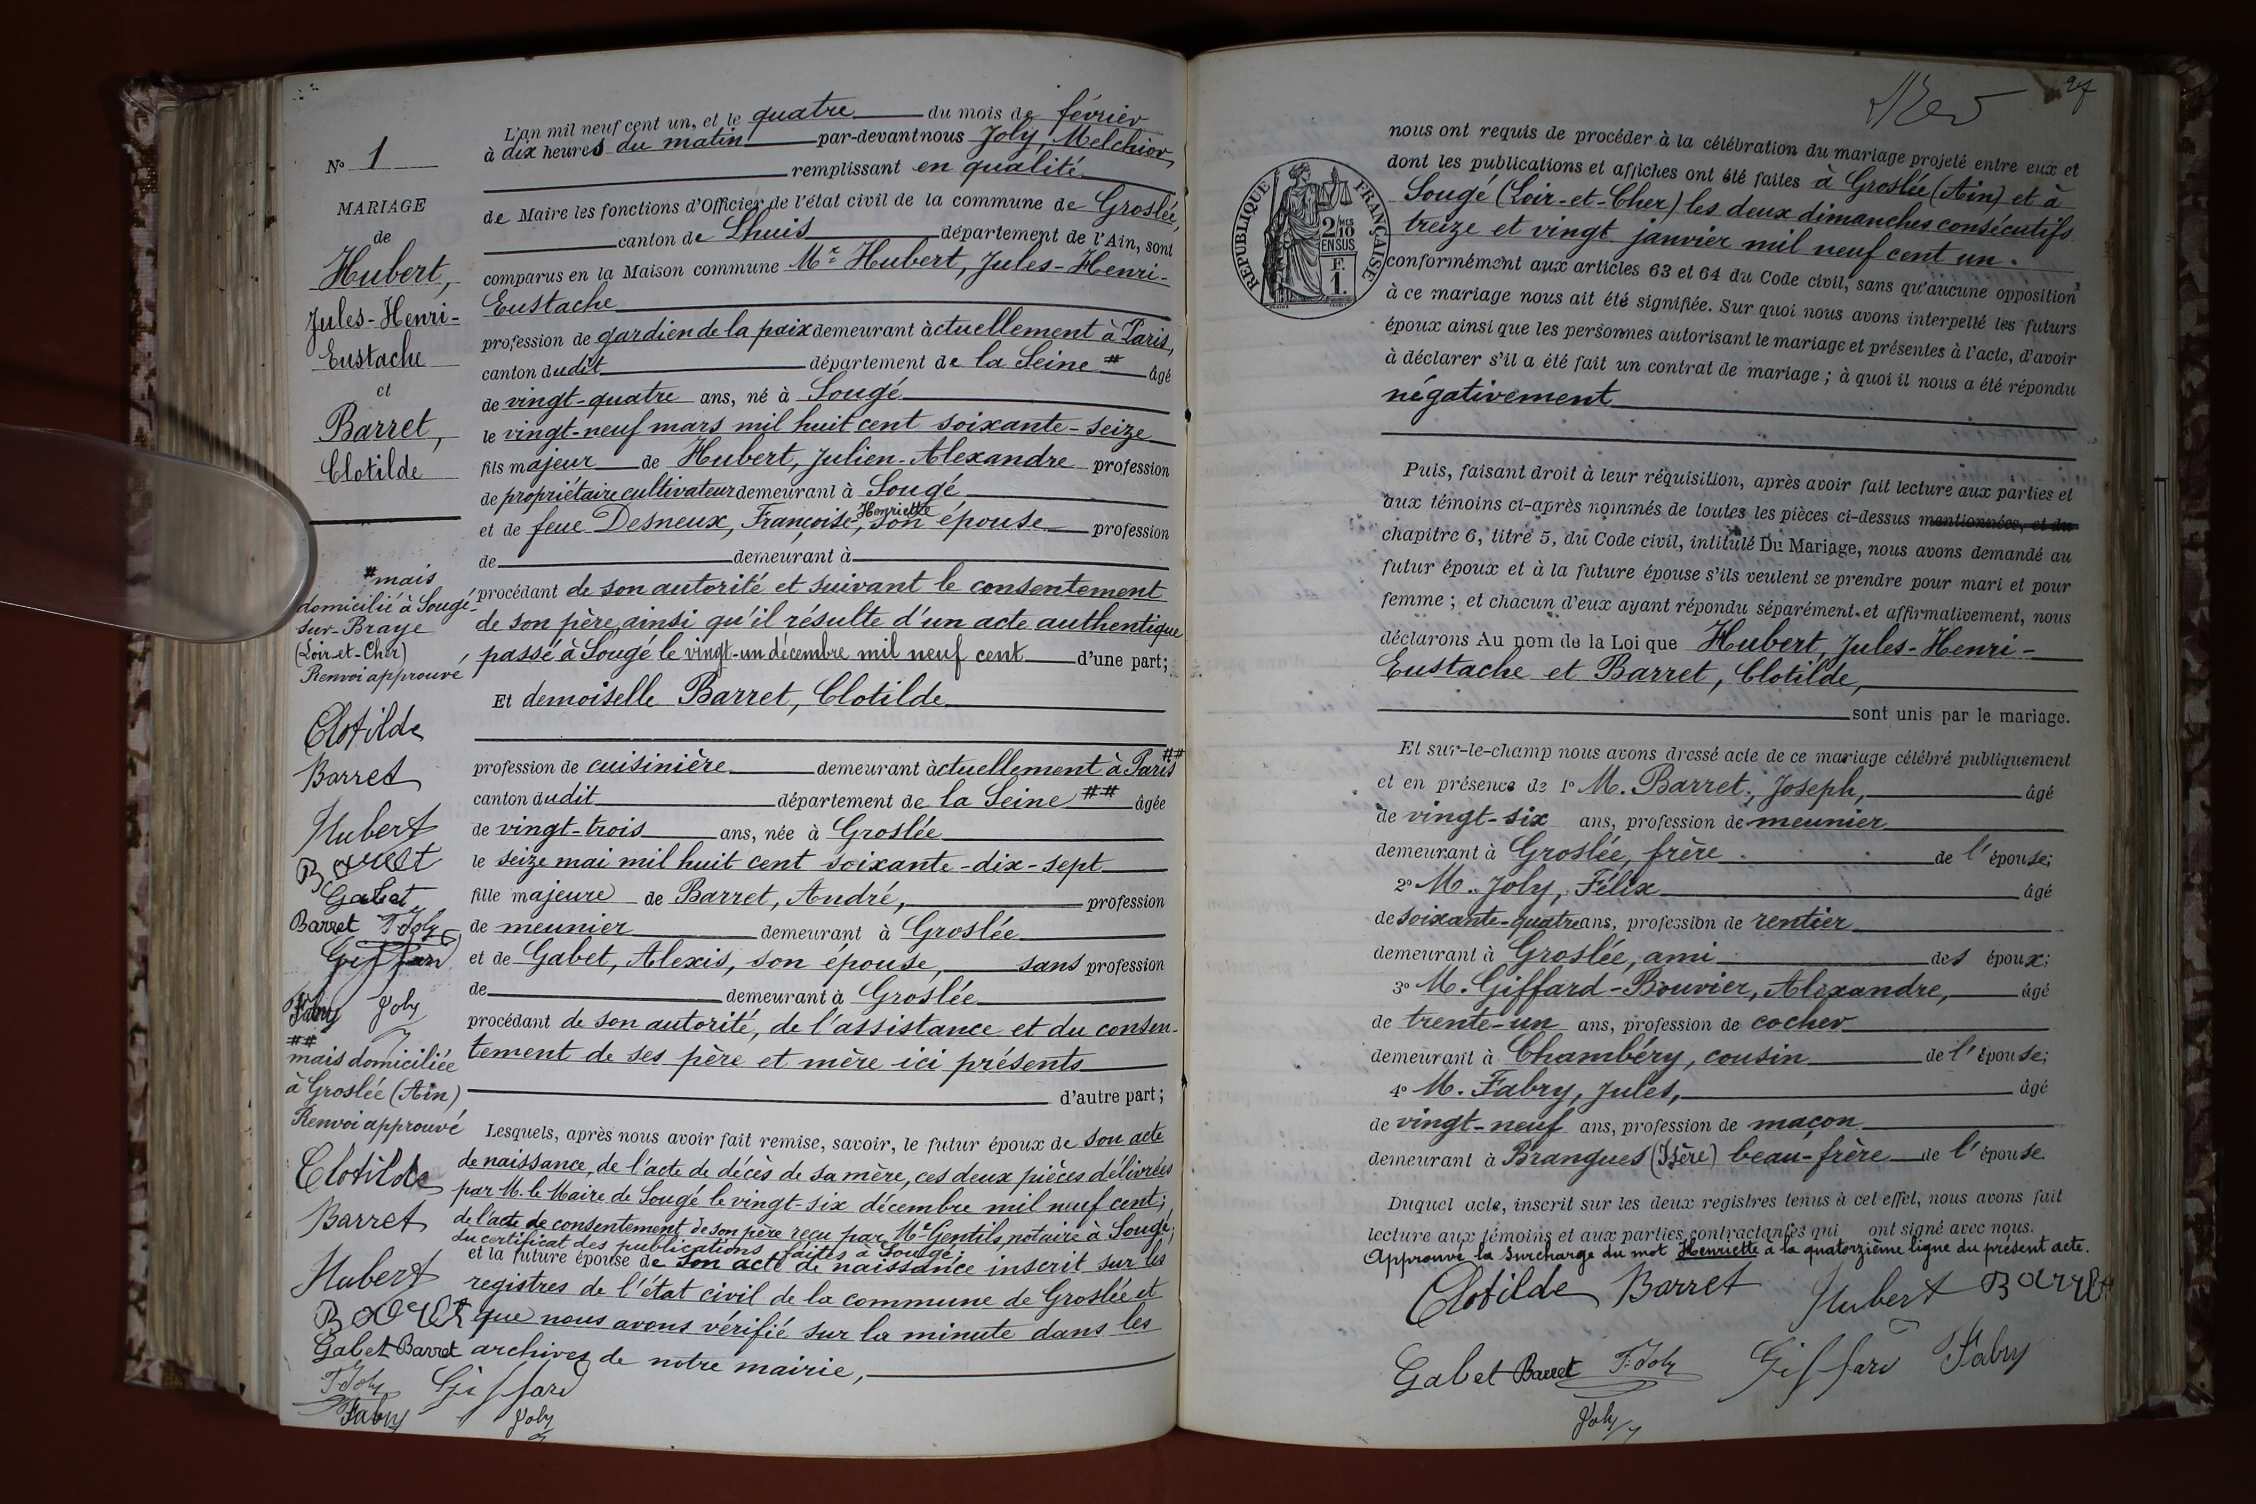 N° 1
MARIAGE
de
Hubert,
Jules-Henri-
Eustache
et
Barret,
Clotilde
# mais
domicilié à Sougé-
sur-Braye
(Loir-et-Cher)
Renvoi approuvé
Clotilde
Barret
Hubert
Barret
Gabet
Barret F. Joly
Giffard
Fabry Joly
##
mais domiciliée
à Groslée (Ain)
Renvoi approuvé
Clotilde
Barret
Hubert
Barret
Gabet Barret
F. Joly Giffard
Fabry Joly
L'an mil neuf cent un, et le quatre du mois de février
à dix heures du matin par-devant nous Joly, Melchior,
remplissant en qualité
de Maire les fonctions d'Officier de l'état civil de la commune de Groslée,
canton de Lhuis département de l'Ain, sont
comparus en la Maison commune Mr Hubert, Jules-Henri-
Eustache
profession de gardien de la paix demeurant actuellement à Paris,
canton dudit département de la Seine # âgé
de vingt-quatre ans, né à Sougé
le vingt-neuf mars mil huit cent soixante-seize
fils majeur de Hubert, Julien-Alexandre profession
de propriétaire cultivateur demeurant à Sougé
et de feue Desneux, Françoise, Henriette son épouse profession
de demeurant à
procédant de son autorité et suivant le consentement
de son père, ainsi qu'il résulte d'un acte authentique
passé à Sougé le vingt-un décembre mil neuf cent d'une part;
Et demoiselle Barret, Clotilde
profession de cuisinière demeurant actuellement à Paris ##
canton dudit département de la Seine ## âgée
de vingt-trois ans, née à Groslée
le seize mai mil huit cent soixante-dix-sept
fille majeure de Barret, André, profession
de meunier demeurant à Groslée
et de Gabet, Alexis, son épouse, sans profession
de demeurant à Groslée
procédant de son autorité, de l'assistance et du consen-
tement de ses père et mère ici présents
d'autre part;
Lesquels, après nous avoir fait remise, savoir, le futur époux de son acte
de naissance, de l'acte de décès de sa mère, ces deux pièces délivrées
par M. le Maire de Sougé le vingt-six décembre mil neuf cent;
de l'acte de consentement de son père reçu par Me Gentils, notaire à Sougé;
du certificat des publications faites à Sougé;
et la future épouse de son acte de naissance inscrit sur les
registres de l'état civil de la commune de Groslée et
que nous avons vérifié sur la minute dans les
archives de notre mairie,
27
RÉPUBLIQUE FRANÇAISE
2/10 EN SUS
F. 1.
nous ont requis de procéder à la célébration du mariage projeté entre eux et
dont les publications et affiches ont été faites à Groslée (Ain) et à
Sougé (Loir-et-Cher) les deux dimanches consécutifs
treize et vingt janvier mil neuf cent un.
conformément aux articles 63 et 64 du Code civil, sans qu'aucune opposition
à ce mariage nous ait été signifiée. Sur quoi nous avons interpellé les futurs
époux ainsi que les personnes autorisant le mariage et présentes à l'acte, d'avoir
à déclarer s'il a été fait un contrat de mariage; à quoi il nous a été répondu
négativement
Puis, faisant droit à leur réquisition, après avoir fait lecture aux parties et
aux témoins ci-après nommés de toutes les pièces ci-dessus mentionnées, et du
chapitre 6, titre 5, du Code civil, intitulé Du Mariage, nous avons demandé au
futur époux et à la future épouse s'ils veulent se prendre pour mari et pour
femme; et chacun d'eux ayant répondu séparément et affirmativement, nous
déclarons Au nom de la Loi que Hubert, Jules-Henri-
Eustache et Barret, Clotilde,
sont unis par le mariage.
Et sur-le-champ nous avons dressé acte de ce mariage célébré publiquement
et en présence de 1° M. Barret, Joseph, âgé
de vingt-six ans, profession de meunier
demeurant à Groslée, frère de l'épouse;
2° M. Joly, Félix âgé
de soixante-quatre ans, profession de rentier
demeurant à Groslée, ami des époux;
3° M. Giffard-Bouvier, Alexandre, âgé
de trente-un ans, profession de cocher
demeurant à Chambéry, cousin de l'épouse;
4° M. Fabry, Jules, âgé
de vingt-neuf ans, profession de maçon
demeurant à Brangues (Isère) beau-frère de l'épouse.
Duquel acte, inscrit sur les deux registres tenus à cet effet, nous avons fait
lecture aux témoins et aux parties contractantes qui ont signé avec nous.
Approuvé la surcharge du mot Henriette à la quatorzième ligne du présent acte.
Clotilde Barret Hubert Barret
Gabet Barret F. Joly Giffard Fabry
Joly